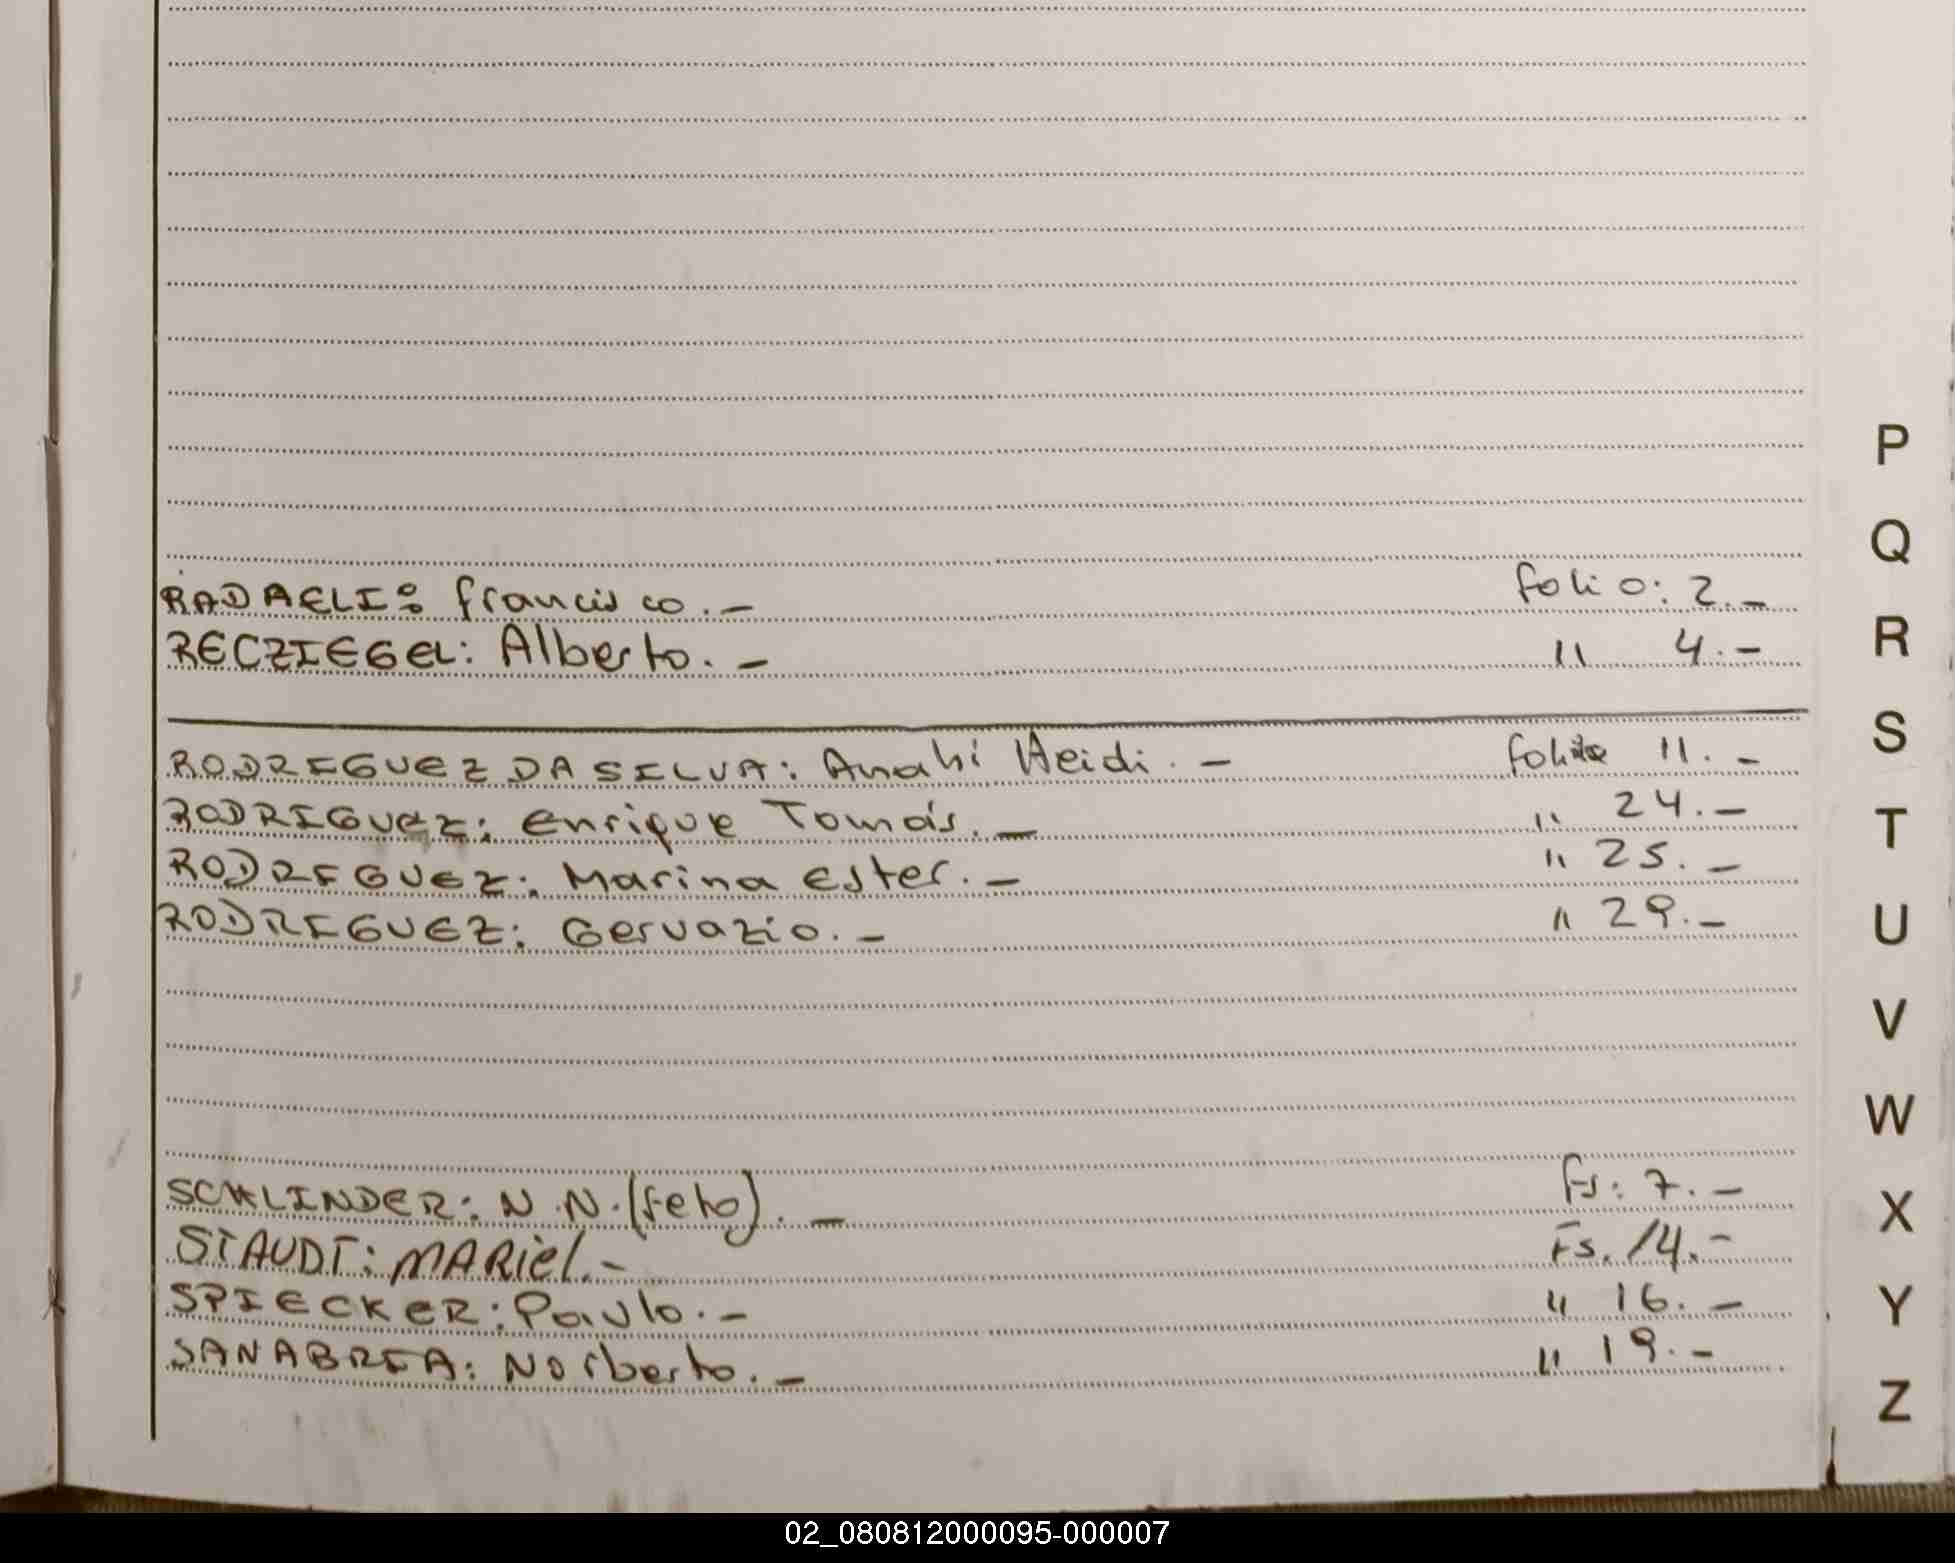 RADAELI: Francisco. — folio: 2. —
RECZIEGEL: Alberto. — " 4. —
RODRIGUEZ DA SILVA: Anahi Heidi. — 11. —
RODRIGUEZ: Enrique Tomás. — " 24. —
RODRIGUEZ: Marina Ester. — " 25. —
RODRIGUEZ: Gervazio. — " 29. —
SCHLINDER: N.N. (feto). — Fs: 7. —
STAUDT: MARiel. — Fs. 14. —
SPIECKER: Paulo. — " 16. —
SANABRIA: Norberto. — " 19. —
P
Q
R
S
T
U
V
W
X
Y
Z
02_080812000095-000007